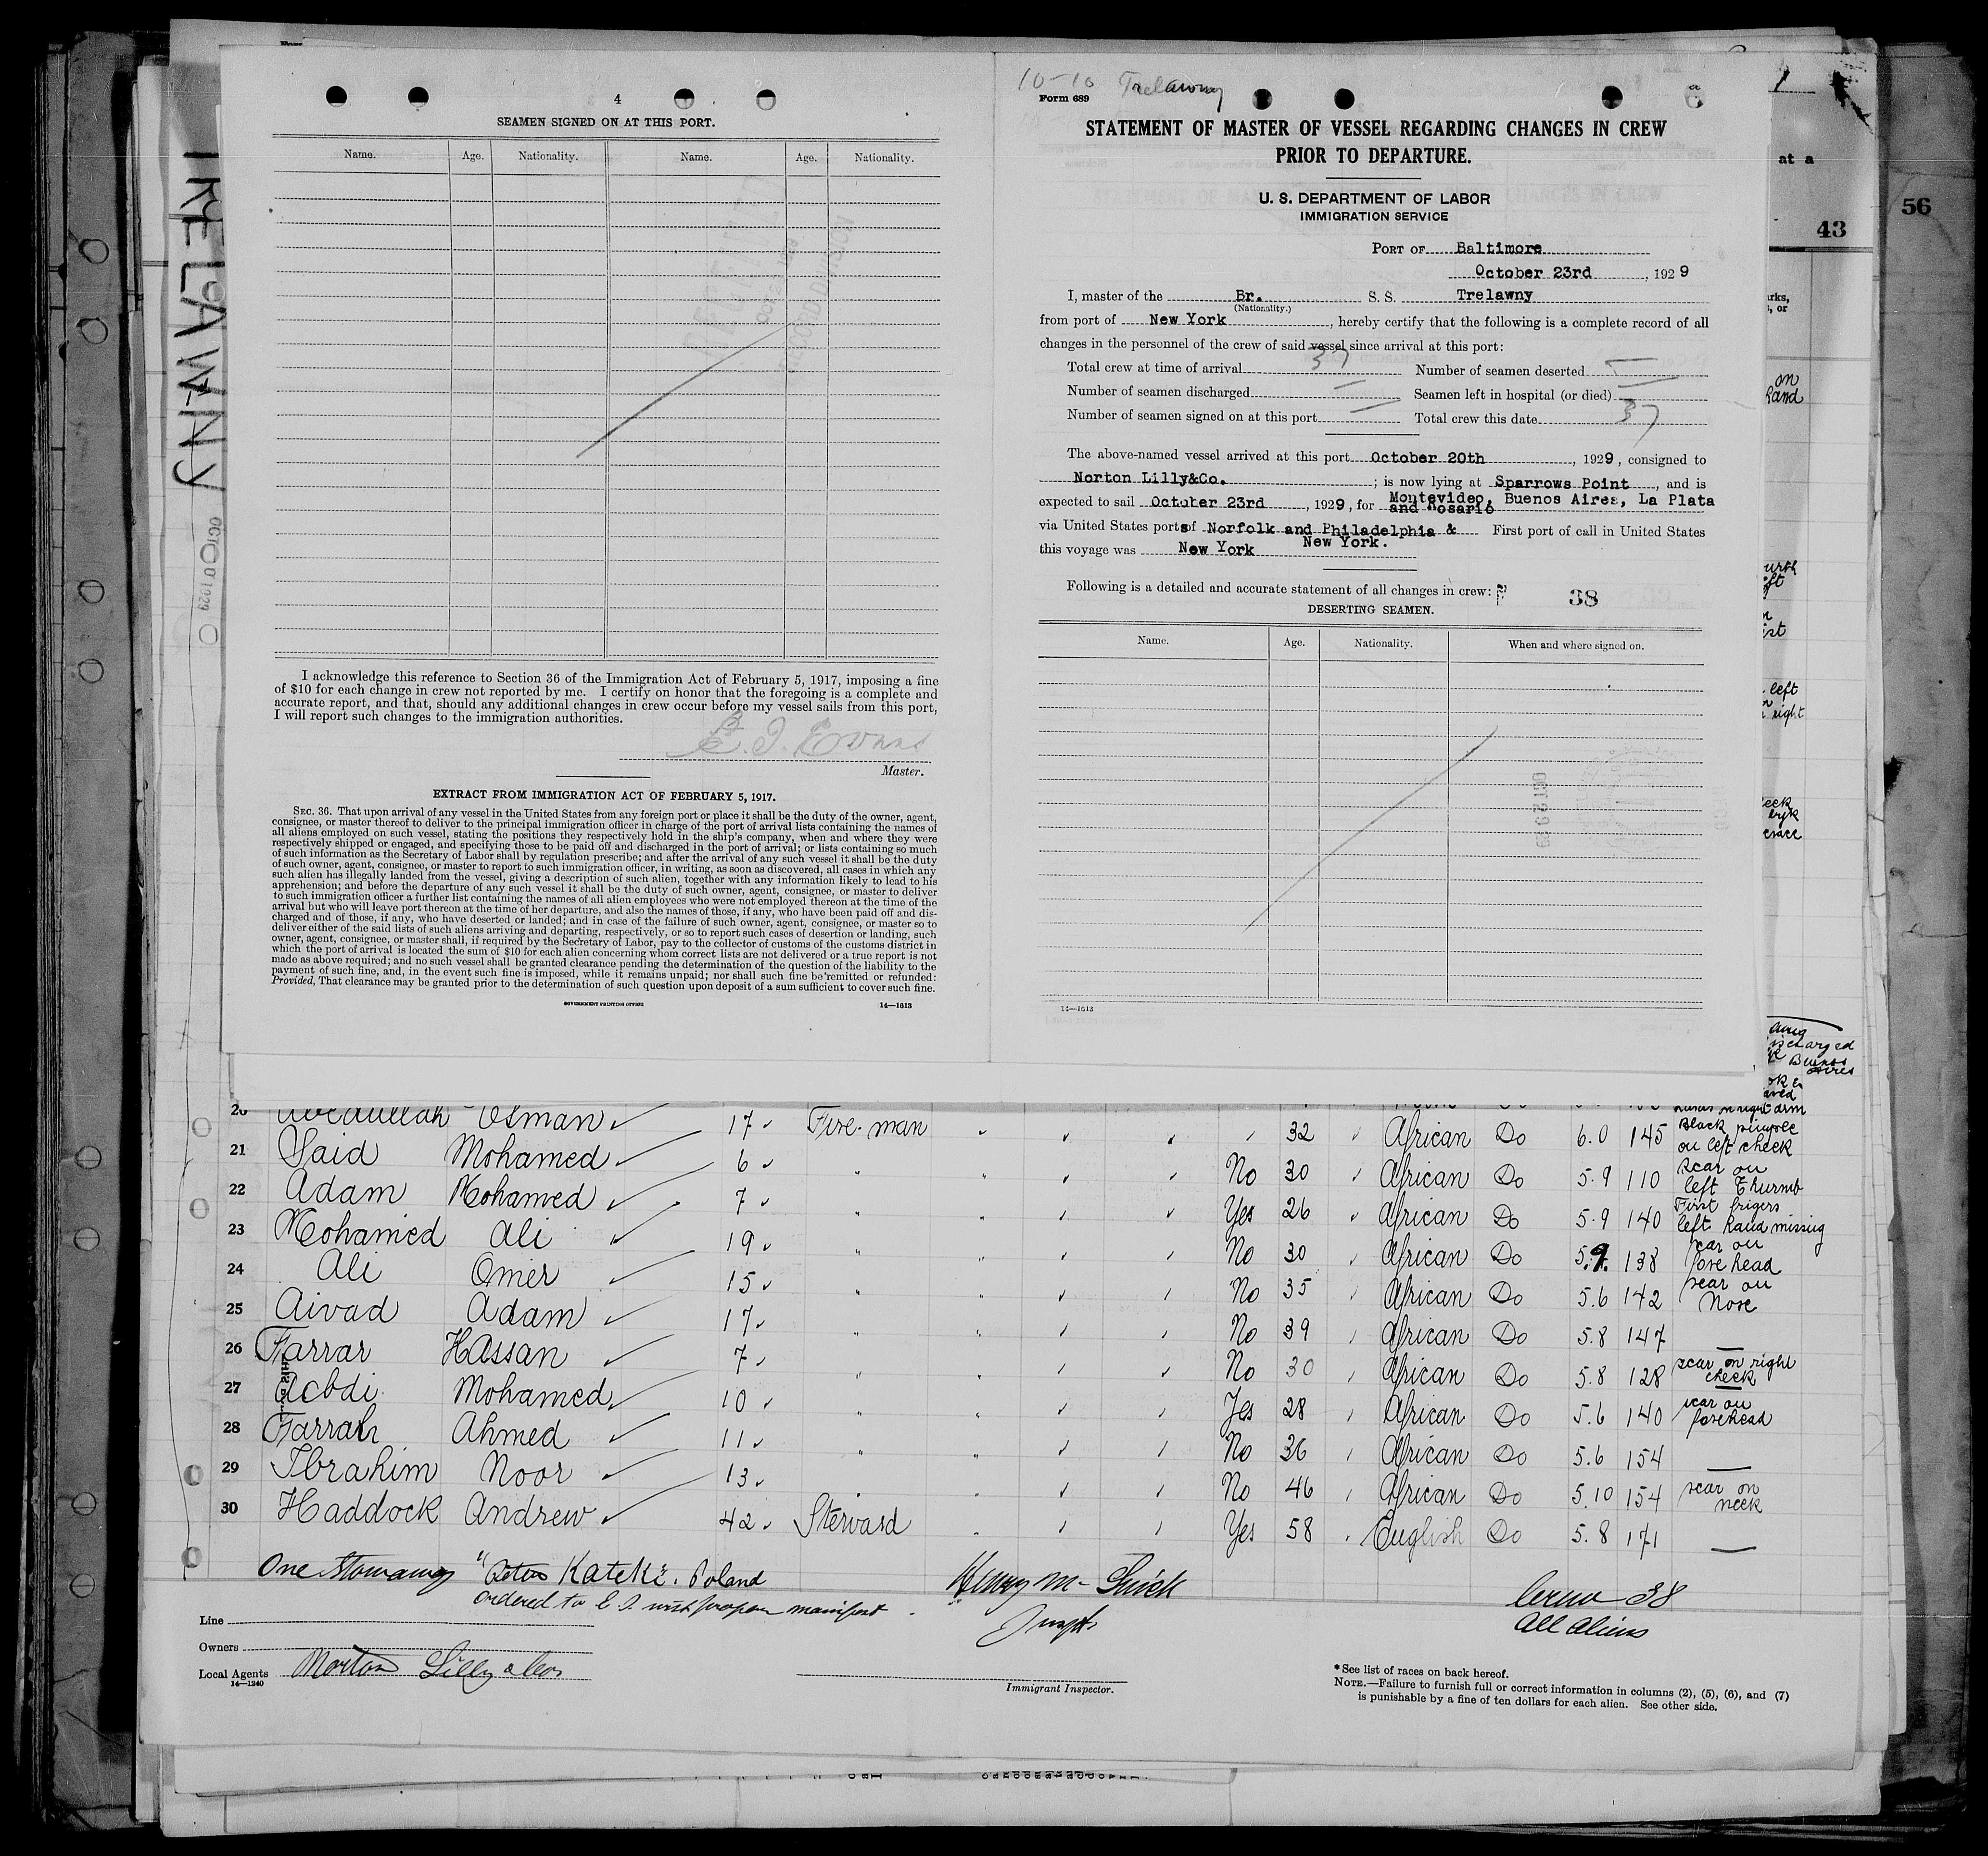 TRELAWNY
4
SEAMEN SIGNED ON AT THIS PORT.
Name. Age. Nationality. Name. Age. Nationality.
I acknowledge this reference to Section 36 of the Immigration Act of February 5, 1917, imposing a fine
of $10 for each change in crew not reported by me. I certify on honor that the foregoing is a complete and
accurate report, and that, should any additional changes in crew occur before my vessel sails from this port,
I will report such changes to the immigration authorities.
Evans
Master.
EXTRACT FROM IMMIGRATION ACT OF FEBRUARY 5, 1917.
SEC. 36. That upon arrival of any vessel in the United States from any foreign port or place it shall be the duty of the owner, agent,
consignee, or master thereof to deliver to the principal immigration officer in charge of the port of arrival lists containing the names of
all aliens employed on such vessel, stating the positions they respectively hold in the ship's company, when and where they were
respectively shipped or engaged, and specifying those to be paid off and discharged in the port of arrival; or lists containing so much
of such information as the Secretary of Labor shall by regulation prescribe; and after the arrival of any such vessel it shall be the duty
of such owner, agent, consignee, or master to report to such immigration officer, in writing, as soon as discovered, all cases in which any
such alien has illegally landed from the vessel, giving a description of such alien, together with any information likely to lead to his
apprehension; and before the departure of any such vessel it shall be the duty of such owner, agent, consignee, or master to deliver
to such immigration officer a further list containing the names of all alien employees who were not employed thereon at the time of the
arrival but who will leave port thereon at the time of her departure, and also the names of those, if any, who have been paid off and dis-
charged and of those, if any, who have deserted or landed; and in case of the failure of such owner, agent, consignee, or master so to
deliver either of the said lists of such aliens arriving and departing, respectively, or so to report such cases of desertion or landing, such
owner, agent, consignee, or master shall, if required by the Secretary of Labor, pay to the collector of customs of the customs district in
which the port of arrival is located the sum of $10 for each alien concerning whom correct lists are not delivered or a true report is not
made as above required; and no such vessel shall be granted clearance pending the determination of the question of the liability to the
payment of such fine, and, in the event such fine is imposed, while it remains unpaid; nor shall such fine be remitted or refunded:
Provided, That clearance may be granted prior to the determination of such question upon deposit of a sum sufficient to cover such fine.
GOVERNMENT PRINTING OFFICE 14—1613
10-10 Trelawny
Form 689
STATEMENT OF MASTER OF VESSEL REGARDING CHANGES IN CREW
PRIOR TO DEPARTURE.
U. S. DEPARTMENT OF LABOR
IMMIGRATION SERVICE
PORT OF Baltimore
October 23rd, 1929
I, master of the Br. S. S. Trelawny
(Nationality.)
from port of New York, hereby certify that the following is a complete record of all
changes in the personnel of the crew of said vessel since arrival at this port:
Total crew at time of arrival 37 Number of seamen deserted —
Number of seamen discharged — Seamen left in hospital (or died) —
Number of seamen signed on at this port — Total crew this date 37
The above-named vessel arrived at this port October 20th, 1929, consigned to
Norton Lilly&Co.; is now lying at Sparrows Point, and is
expected to sail October 23rd, 1929, for Montevideo, Buenos Aires, La Plata
and Rosario
via United States ports of Norfolk and Philadelphia & First port of call in United States
New York.
this voyage was New York
Following is a detailed and accurate statement of all changes in crew: 38
DESERTING SEAMEN.
Name. Age. Nationality. When and where signed on.
OCT 29 1929
14—1613
at a
43
56
20 Abdullah Osman 17 Fire-man 32 African Do 6.0 145 Black pimple on left cheek
21 Said Mohamed 6 " No 30 African Do 5.9 110 scar on left Thumb
22 Adam Mohamed 7 " Yes 26 African Do 5.9 140 First fingers left hand missing
23 Mohamed Ali 19 " No 30 African Do 5.9. 138 scar on fore head
24 Ali Omer 15 " No 35 African Do 5.6 142 scar on Nose
25 Aivad Adam 17 " No 39 African Do 5.8 147 —
26 Farrar Hassan 7 " No 30 African Do 5.8 128 scar on right cheek
27 Acbdi Mohamed 10 " Yes 28 African Do 5.6 140 scar on forehead
28 Farrah Ahmed 11 " No 36 African Do 5.6 154 —
29 Ibrahim Noor 13 " No 46 African Do 5.10 154 scar on neck
30 Haddock Andrew 42 Steward Yes 58 English Do 5.8 171 —
One Stowaway "Peter Kateki. Poland
ordered to E. I. with proper manifest.
Henry M-
Crew 38
All Aliens
Line
Owners
Local Agents Norton Lilly & Co
14—1240
Immigrant Inspector.
*See list of races on back hereof.
NOTE.—Failure to furnish full or correct information in columns (2), (5), (6), and (7)
is punishable by a fine of ten dollars for each alien. See other side.